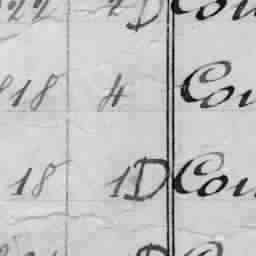 22 4D Cou
818 4 Cou
18 1D Cou